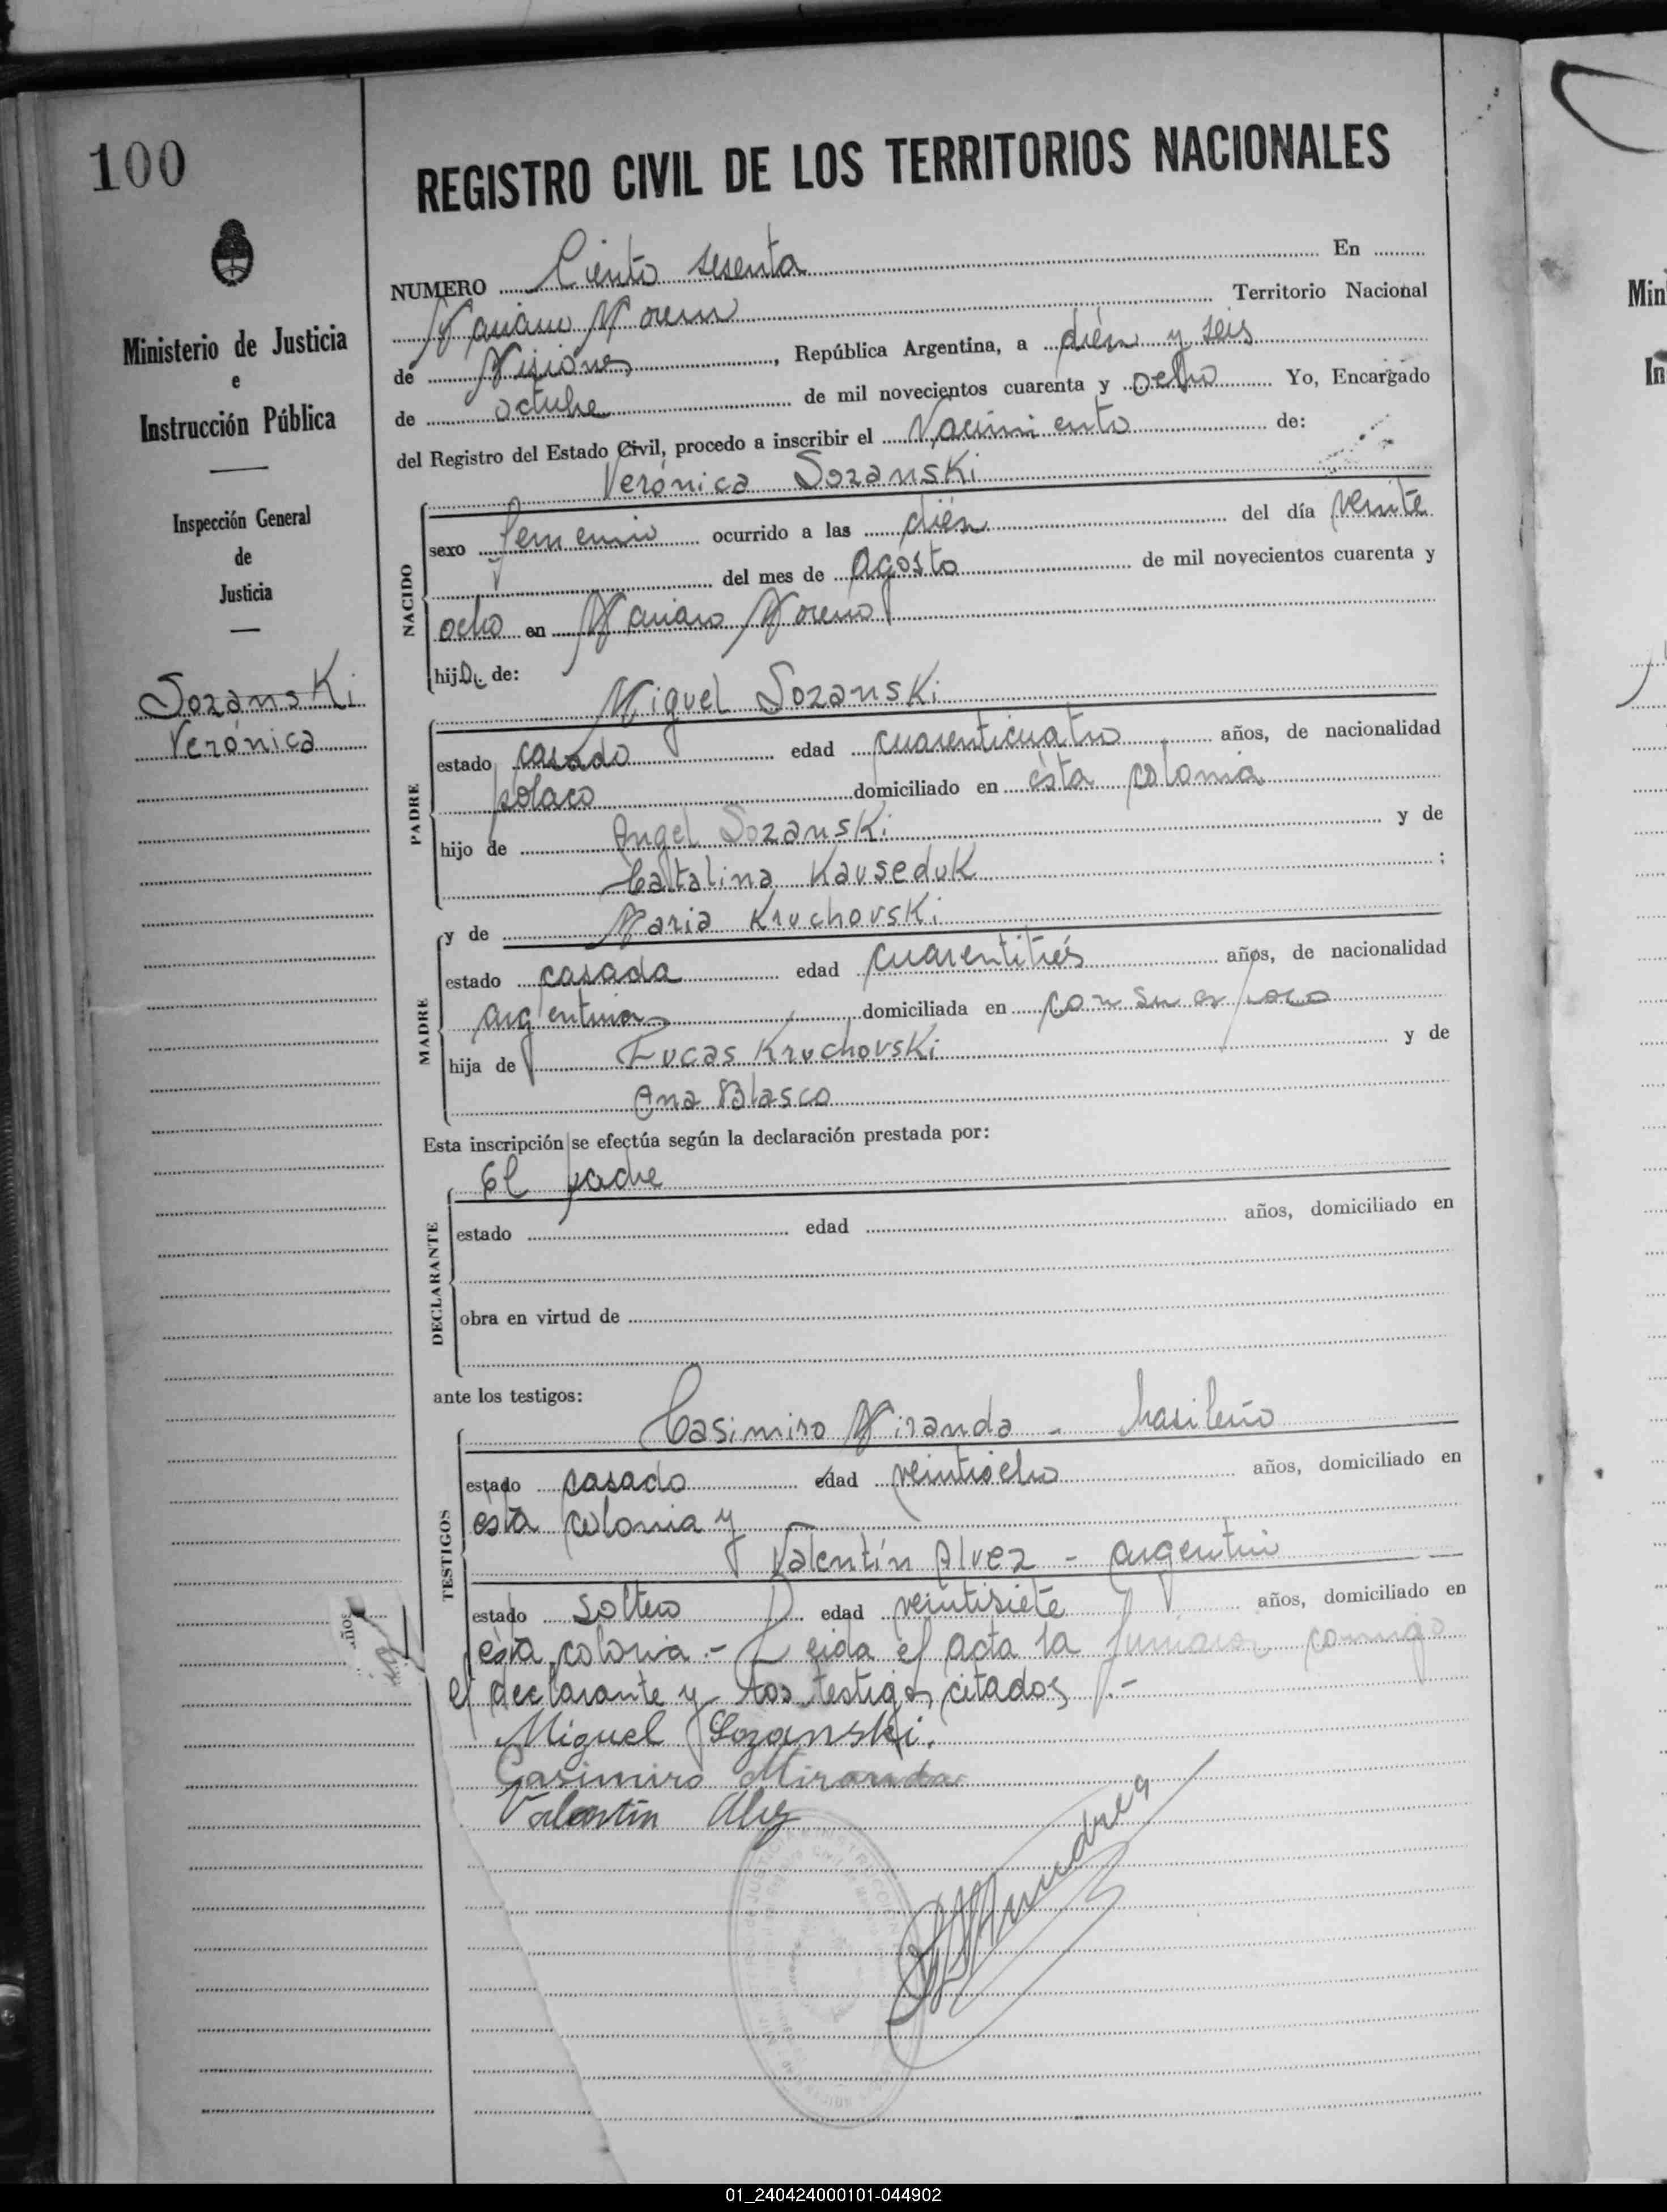 100
REGISTRO CIVIL DE LOS TERRITORIOS NACIONALES
Ministerio de Justicia
e
Instrucción Pública
Inspección General
de
Justicia
Sozanski
Verónica
NUMERO Ciento sesenta En
Mariano Moreno Territorio Nacional
de Misiones, República Argentina, a diéz y seis
de octubre de mil novecientos cuarenta y ocho Yo, Encargado
del Registro del Estado Civil, procedo a inscribir el Nacimiento de:
Verónica Sozanski
NACIDO
sexo femenino ocurrido a las diéz del día veinte
del mes de Agosto de mil novecientos cuarenta y
ocho en Mariano Moreno
hija de:
Miguel Sozanski
PADRE
estado casado edad cuarenticuatro años, de nacionalidad
polaco domiciliado en ésta colonia
hijo de Angel Sozanski y de
Catalina Kauseduk ;
MADRE
y de Maria Kruchovski
estado casada edad cuarentitrés años, de nacionalidad
argentina domiciliada en con su esposo
hija de Lucas Kruchovski y de
Ana Blasco
Esta inscripción se efectúa según la declaración prestada por:
El padre
DECLARANTE
estado edad años, domiciliado en
obra en virtud de
ante los testigos:
Casimiro Miranda - brasileño
TESTIGOS
estado casado edad veintiocho años, domiciliado en
ésta colonia y
Valentín Alvez - argentino
estado soltero edad veintisiete años, domiciliado en
ésta colonia.- Leida el acta la firmaron conmigo
el declarante y los testigos citados.-
Miguel Sozanski.
Casimiro Miranda
Valentin Alvez
años
01_240424000101-044902